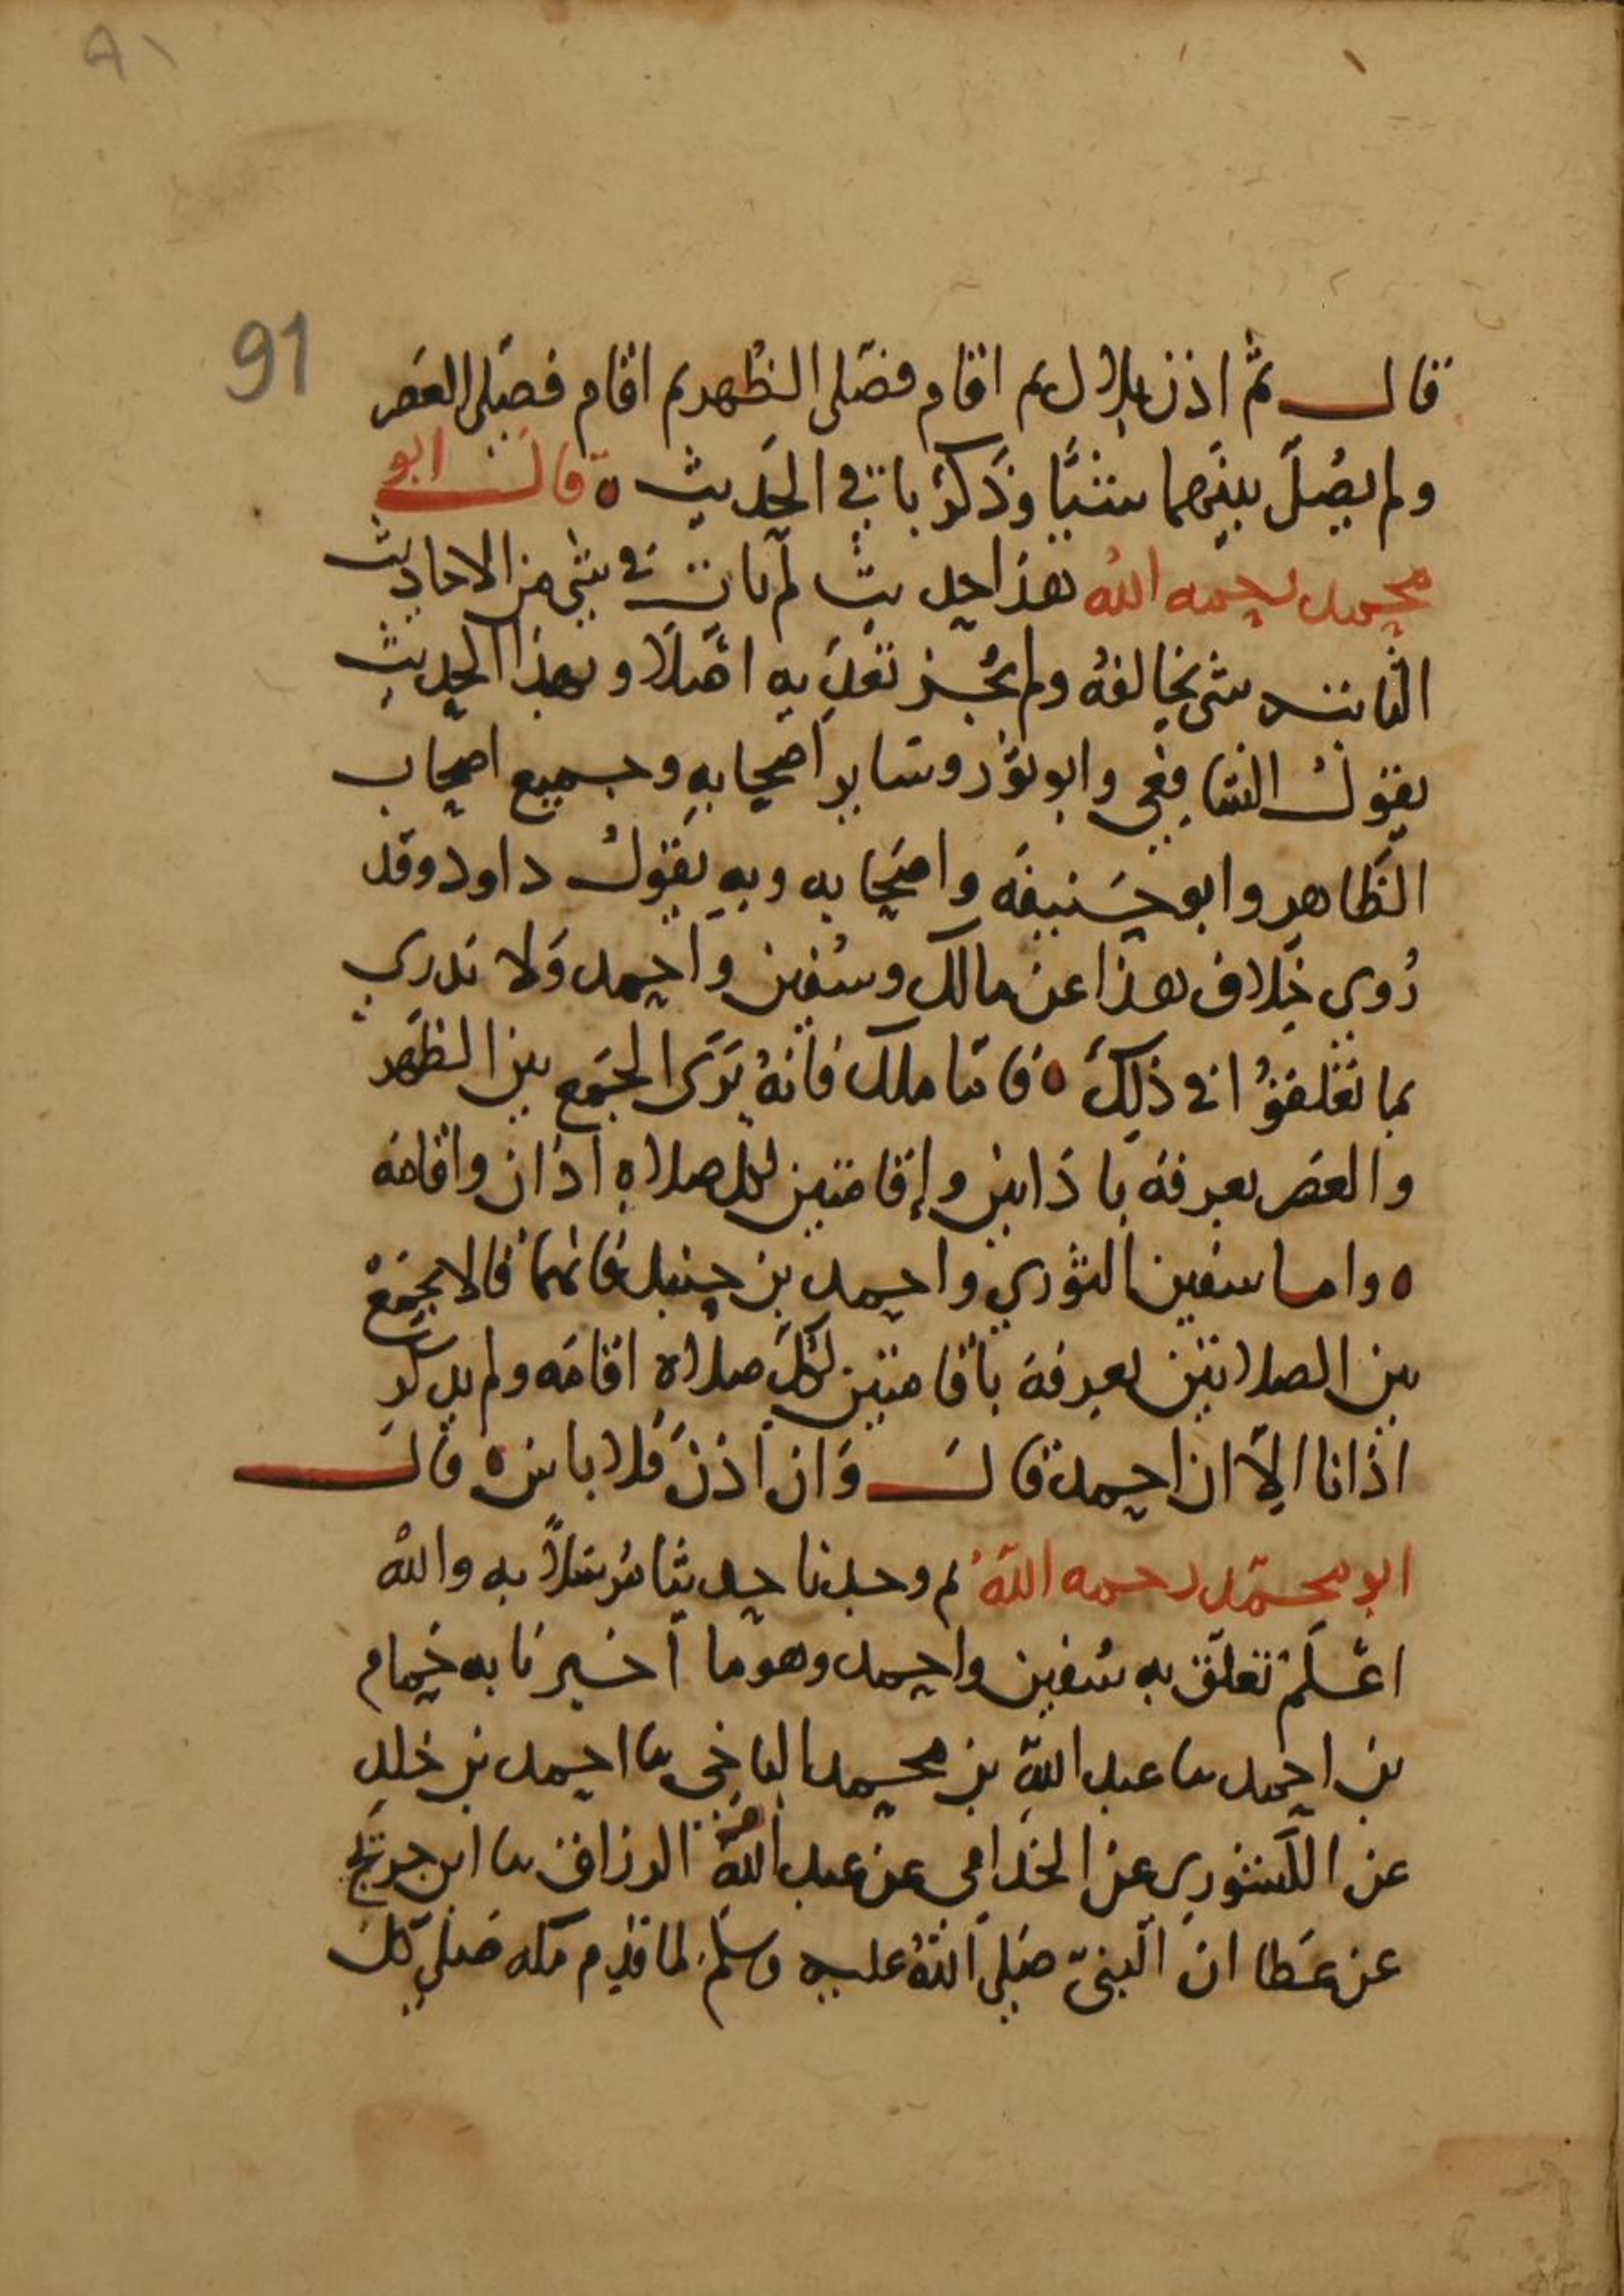 ٩١
91
قال ثم اذن بلال ثم اقام فصلى الظهر ثم اقام فصلى العصر
ولم يصل بينهما شيا وذكر باقي الحديث ه قال ابو
محمد رحمه الله هذا حديث لم يات في شي من الاحاديث
الثابته شي يخالفه ولم يجز تعديه اصلا وبهذا الحديث
يقول الشافعي وابو ثور وساير اصحابه وجميع اصحاب
الظاهر وابو حنيفه واصحابه وبه يقول داود وقد
روي خلاف هذا عن مالك وسفين واحمد ولا ندري
بما تعلقوا في ذلك ه فاما ملك فانه يرى الجمع بين الظهر
والعصر بعرفة باذانين وإقامتين لكل صلاة اذان واقامة
ه واما سفين الثوري واحمد بن حنبل فانهما قالا يجمع
بين الصلاتين بعرفة باقامتين لكل صلاة اقامه ولم يذكر
اذانا الا ان احمد قال وان اذن فلا باس ه قال
ابو محمد رحمه الله ثم وجدنا حديثا مرسلا به والله
اعلم تعلق به سفين واحمد وهو ما اخبرنا به حمام
بن احمد نا عبد الله بن محمد الباجي نا احمد بن خلد
عن الكشوري عن الحذامي عن عبد الرزاق نا ابن جريج
عن عطا ان النبي صلى الله عليه وسلم لما قدم مكه صلى كل